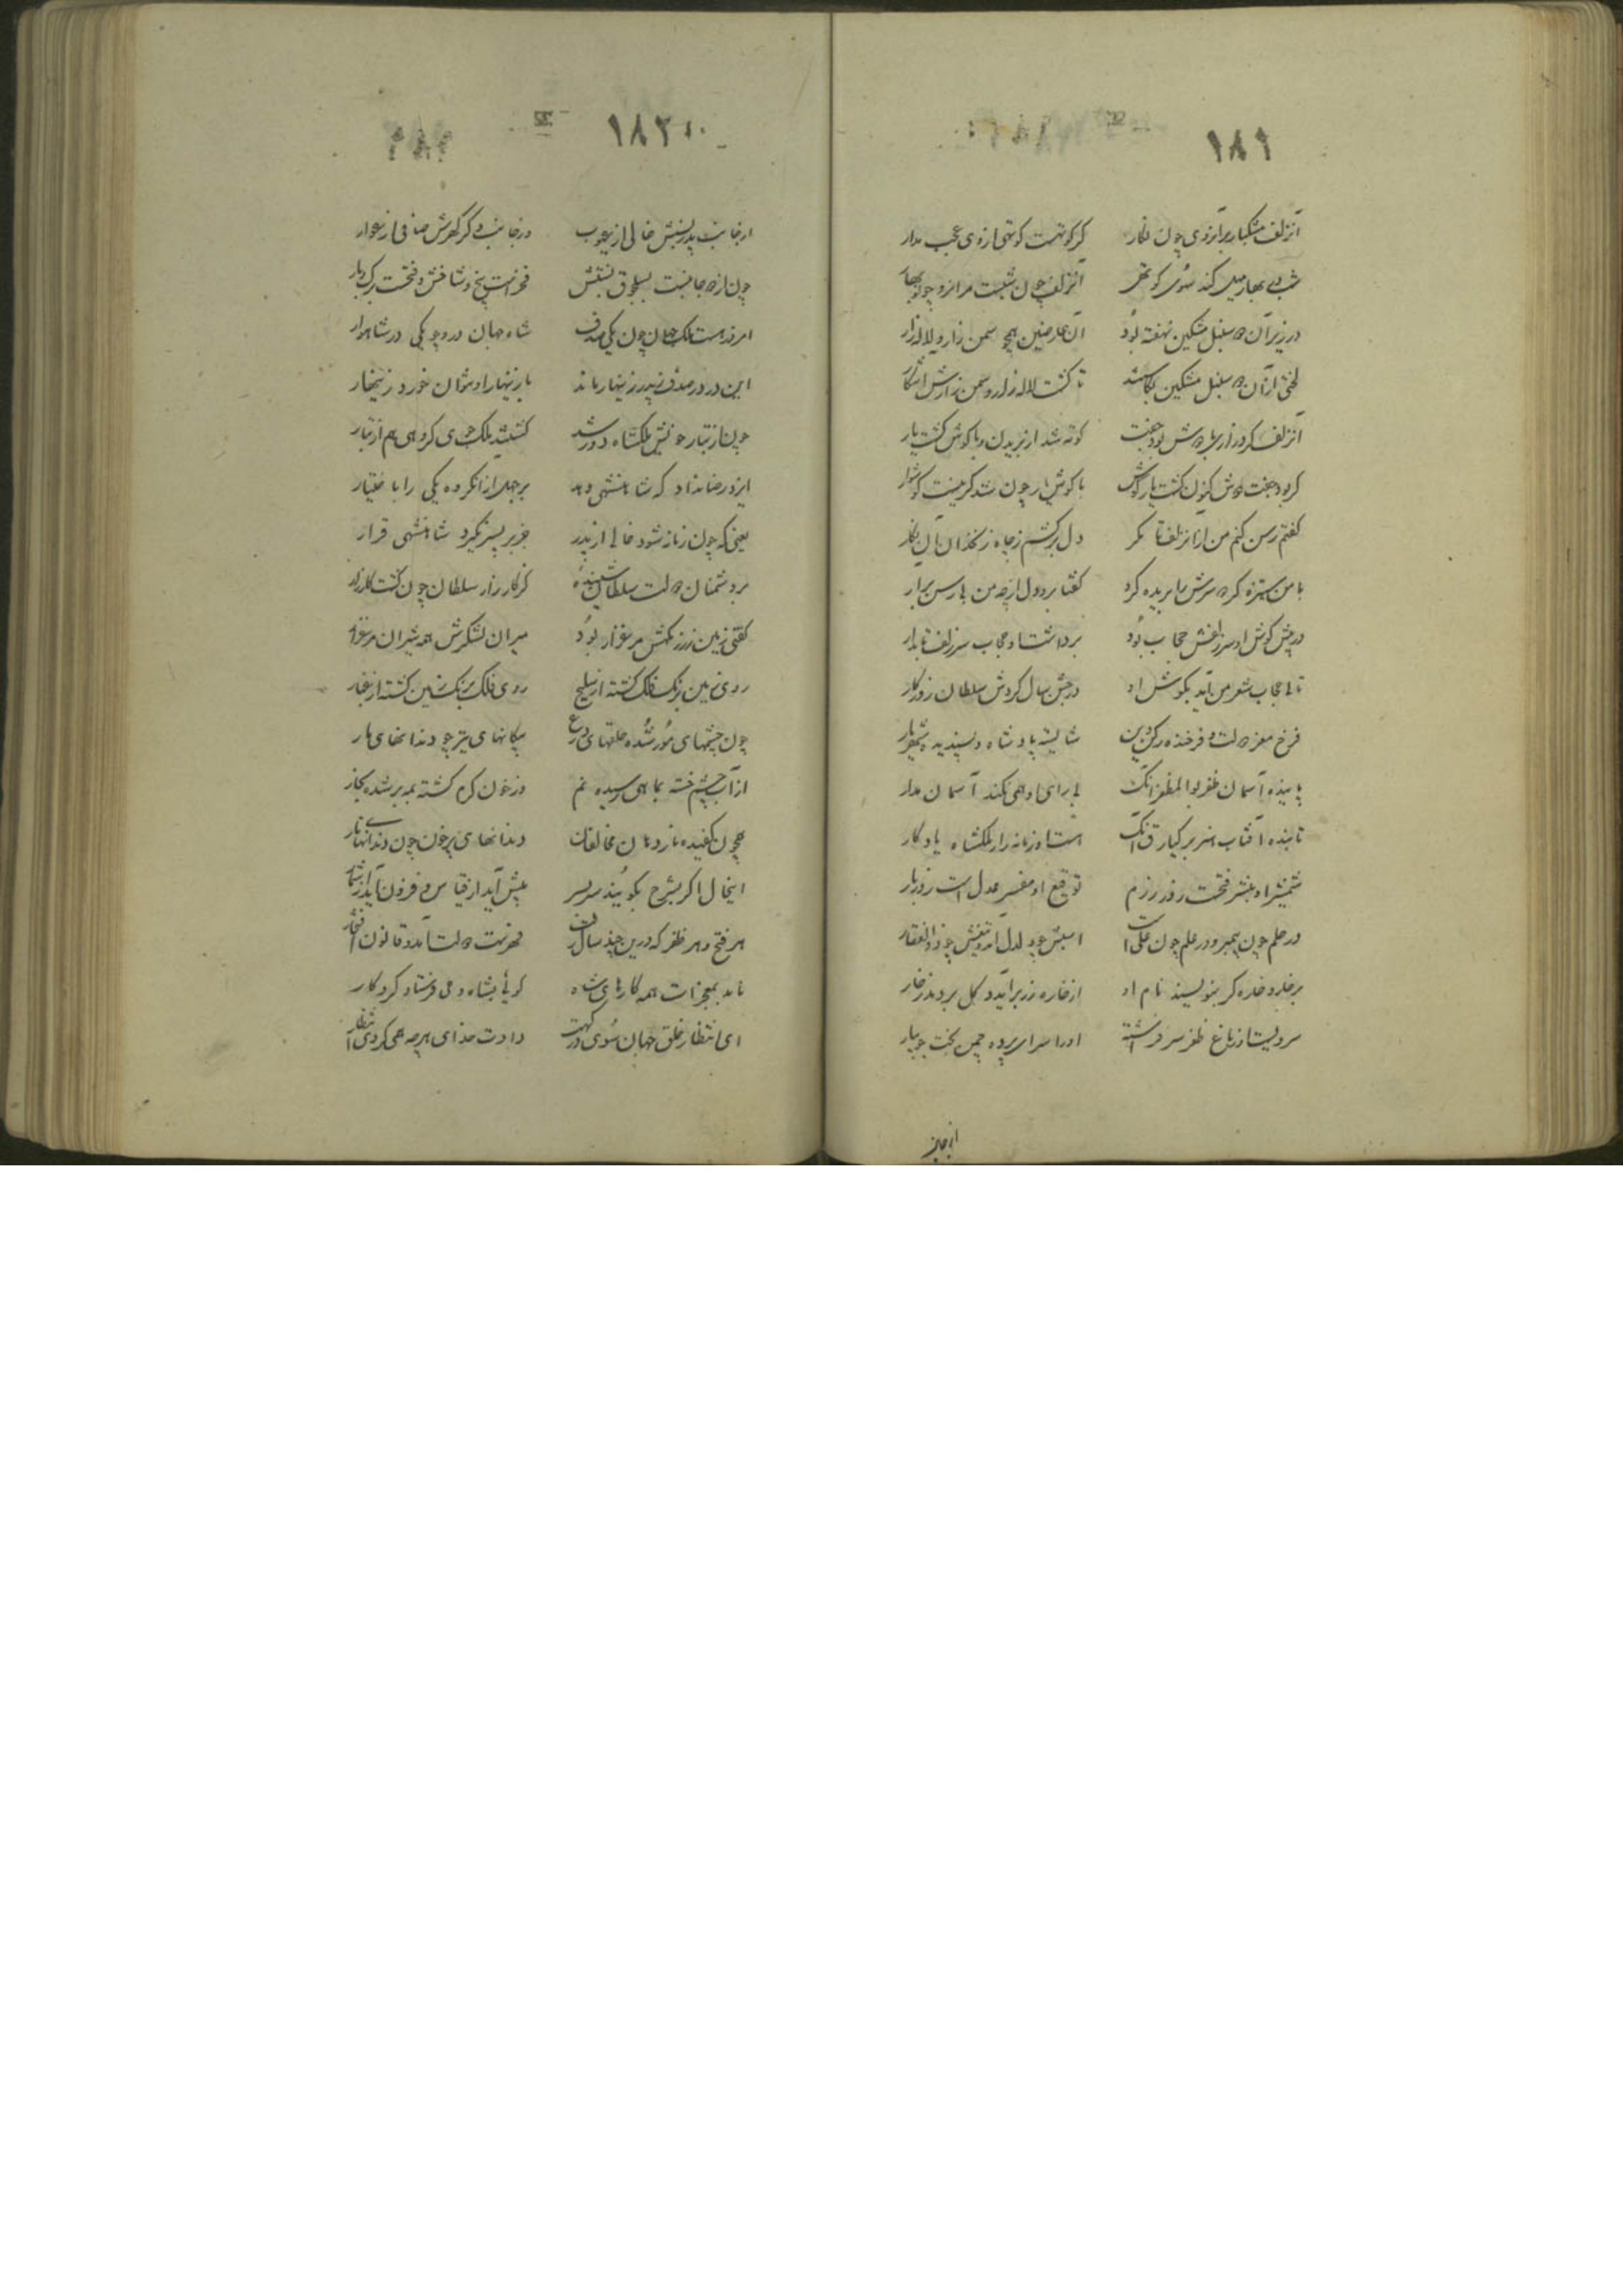 ۱۸۱
آنزلف مشکبار بر آنروی چون نگار گر کوتهست کوتهی ازوی عجب مدار
شب در بهار میل کند سوی کوتهی آنزلف چون شبست مر آنرو چو نوبهار
در زیر آن دو سنبل مشکین نهفته بود آن عارضین همچو سمن زار و لاله زار
لختی از آن دو سنبل مشکین بکاستند تا گشت لاله زار و سمن زارش آشکار
آنزلف کز درازی با دوش بود جفت کوته شد از بریدن و با گوش گشت یار
گر بود جفت دوش کنون گشت یار گوش با گوش یار چون شد گر نیست گوشوار
گفتم رسن کنم من از آنزلف تا مگر دل برکشم ز چاه زنخدان آن نگار
با من ستیزه کرد سرش را بریده کرد گفتا برو دل از چه من بی رسن برآر
در پیش گوش او سر زلفش حجاب بود برداشت او حجاب سر زلف تابدار
تا بی حجاب شعر من آید بگوش او در جشن سال گردش سلطان روزگار
فرخ معز دولت و فرخنده رکن دین شایسته پادشاه و پسندیده شهریار
پاینده آسمان ظفر بوالمظفر آنک بی رای او همی نکند آسمان مدار
تابنده آفتاب هنر برکیارق آنک هست او زمانه را ز ملکشاه یادگار
شمشیر او مبشر فتحست روز رزم توقیع او مفسر عدل است روز بار
در حلم چون پیمبر و در علم چون علی است اسبش چو دلدل آمد و تیغش چو ذوالفقار
بر خار و خاره گر بنویسند نام او از خاره زر برآید و گل بردمد ز خار
سرویست او ز باغ ظفر سر فراشته او را سرای پرده چمن تخت جویبار
از جانب
۱۸۲
از جانب پدر نسبش خالی از عیوب وز جانب دگر گهرش صافی از عوار
چون از دو جانبست بسلجوق نسبتش فخر است بیخ و شاخش و فتحست برگ و بار
امروز هست ملک جهان چون یکی صدف شاه جهان درو چو یکی در شاهوار
این در در صدف ز پدر زینهار ماند با زینهار او نتوان خورد زینهار
چون از تبار خویش ملکشاه دور شد گشتند ملک جوی گروهی هم از تبار
ایزد رضا نداد که شاهنشهی دهد بر جهل از آن گروه یکی را باختیار
یعنی که چون زمانه شود خالی از پدر جز بر پسر نگیرد شاهنشهی قرار
بر دشمنان دولت سلطان شنیده‌ای کز کارزار سلطان چون گشت کار زار
گفتی زمین رزمگهش مرغزار بود میران لشکرش همه شیران مرغزار
روی زمین برنگ فلک گشته از سلیح روی فلک برنگ زمین گشته از غبار
چون چشمهای مور شده حلقهای درع پیکانهای تیر چو دندانهای مار
از آب چشم خسته بماهی رسیده نم وز خون گرم کشته بمه بر شده بخار
همچون کفیده نار دهان مخالفان دندانهای پرخون چون دانهای نار
اینحال اگر بشرح بگویند سربسر بیش آید از قیاس و فزون آید از شمار
هر فتح و هر ظفر که درین چند سال رفت فهرست دولت آمد و قانون افتخار
ماند بمعجزات همه کارهای شاه گویا بشاه وحی فرستاد کردگار
ای انتظار خلق جهان سوی درگهت دادت خدای هر چه همی کردی انتظار